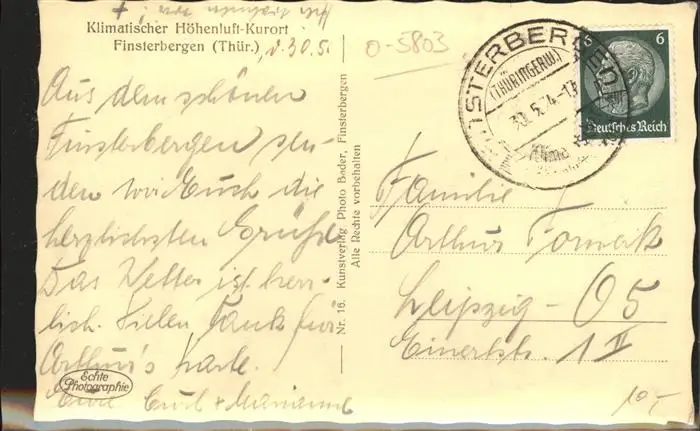 Klimatischer Höhenluft-Kurort
Finsterbergen (Thür.), d. 30.5.
Aus dem schönen
Finsterbergen sen-
den wir Euch die
herzlichsten Grüße
Das Wetter ist herr-
lich. Vielen Dank für
Arthur's Karte.
Eure Curt + Marianne
Echte
Photographie
Nr. 16. Kunstverlag Photo Bader, Finsterbergen
Alle Rechte vorbehalten
0-5803
FINSTERBERGEN
(THÜRINGERW.)
30.5.
Klima
6
Deutsches Reich
Familie
Arthur
Leipzig - O5
Einertstr. 1 II
10,-